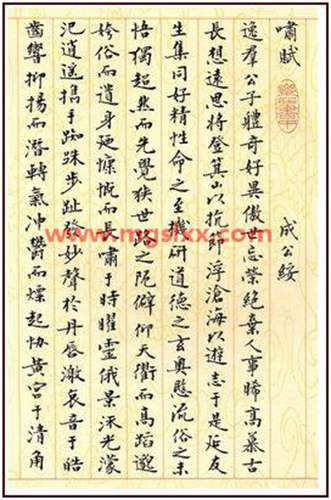 嘯賦 成公綏
逸羣公子體奇好異傲世忘榮絕棄人事晞高慕古
長想遠思將登箕山以抗節浮滄海以遊志于是延友
生集同好精性命之至機研道德之玄奧愍流俗之未
悟獨超然而先覺狹世路之阨僻仰天衢而高蹈邈
姱俗而遺身乃慷慨而長嘯于時曜靈俄景流光濛
汜逍遙攜手踟跦步趾發妙聲於丹唇激哀音于皓
齒響抑揚而潛轉氣沖鬱而熛起協黃宮于清角
www.mgslxx.com